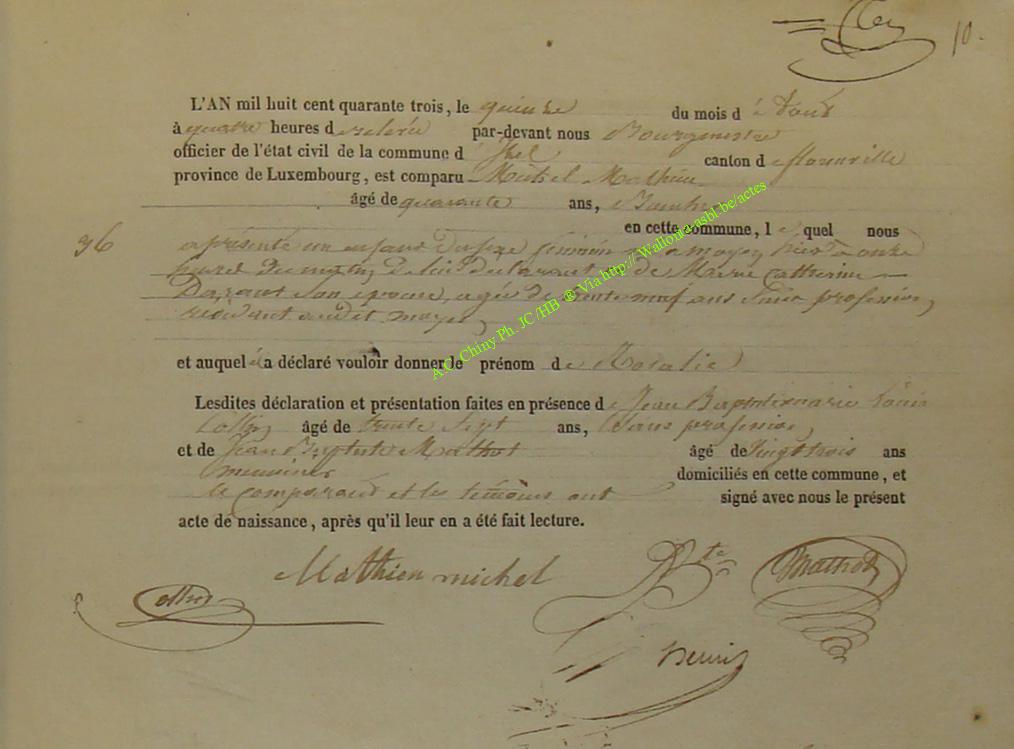 10.
L'AN mil huit cent quarante trois, le quinze du mois d'août
à quatre heures de relevée par-devant nous Bourgmestre
officier de l'état civil de la commune d'Izel canton de florenville
province de Luxembourg, est comparu Michel Mathieu
âgé de quarante ans,
en cette commune, lequel nous
36 a présenté un enfant du sexe féminin né à moyen hier à onze
heures du matin de lui déclarant et de Marie Catherine
son épouse, agée de trente neuf ans sans profession,
résidant audit moyen,
et auquel il a déclaré vouloir donner le prénom de Rosalie
Lesdites déclaration et présentation faites en présence de Jean louis
âgé de trente sept ans, sans profession,
et de Jean Baptiste Mathot âgé de vingt trois ans
meunier domiciliés en cette commune, et
le comparant et les témoins ont signé avec nous le présent
acte de naissance, après qu'il leur en a été fait lecture.
Mathieu michel
Bte Mathot
A.G. Chiny Ph. JC /HB ® Via http://Wallonia.asbl.be/actes